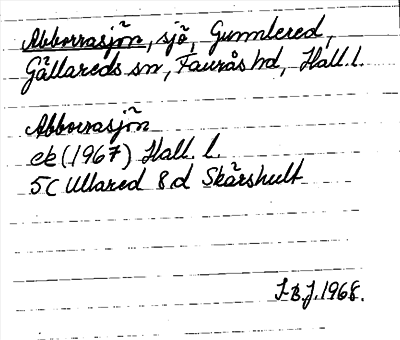 Abborrasjön, sjö, Gunnlered,
Gällareds sn, Faurås hd, Hall. l.
Abborrasjön
ek (1967) Hall. l.
5C Ullared 8d Skärshult
J.B.J. 1968.